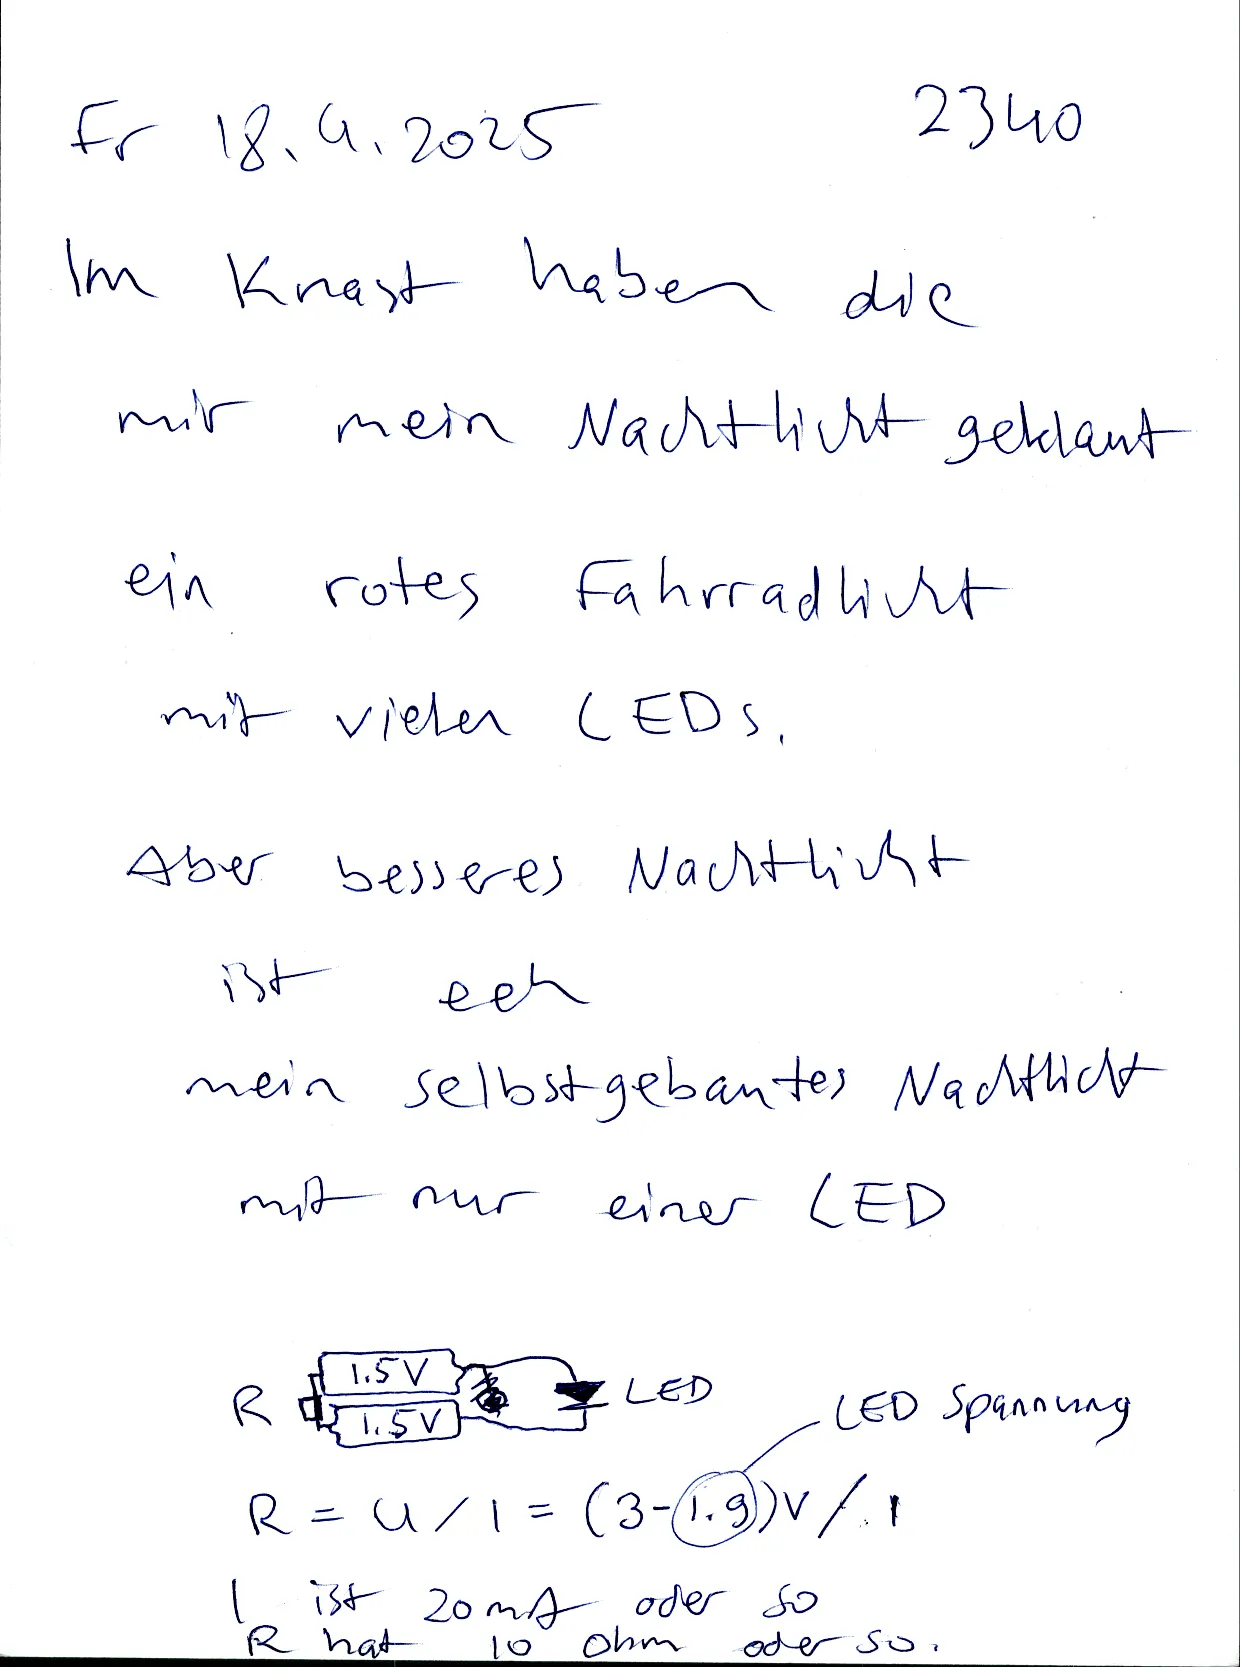 Fr 18.4.2025 2340
Im Knast haben die
mir mein Nachtlicht geklaut
ein rotes Fahrradlicht
mit vielen LEDs.
Aber besseres Nachtlicht
ist eeh
mein selbstgebautes Nachtlicht
mit nur einer LED
1.5V
R 1.5V LED
LED Spannung
R = U / I = (3-1.9)V / I
I ist 20mA oder so
R hat 10 Ohm oder so.